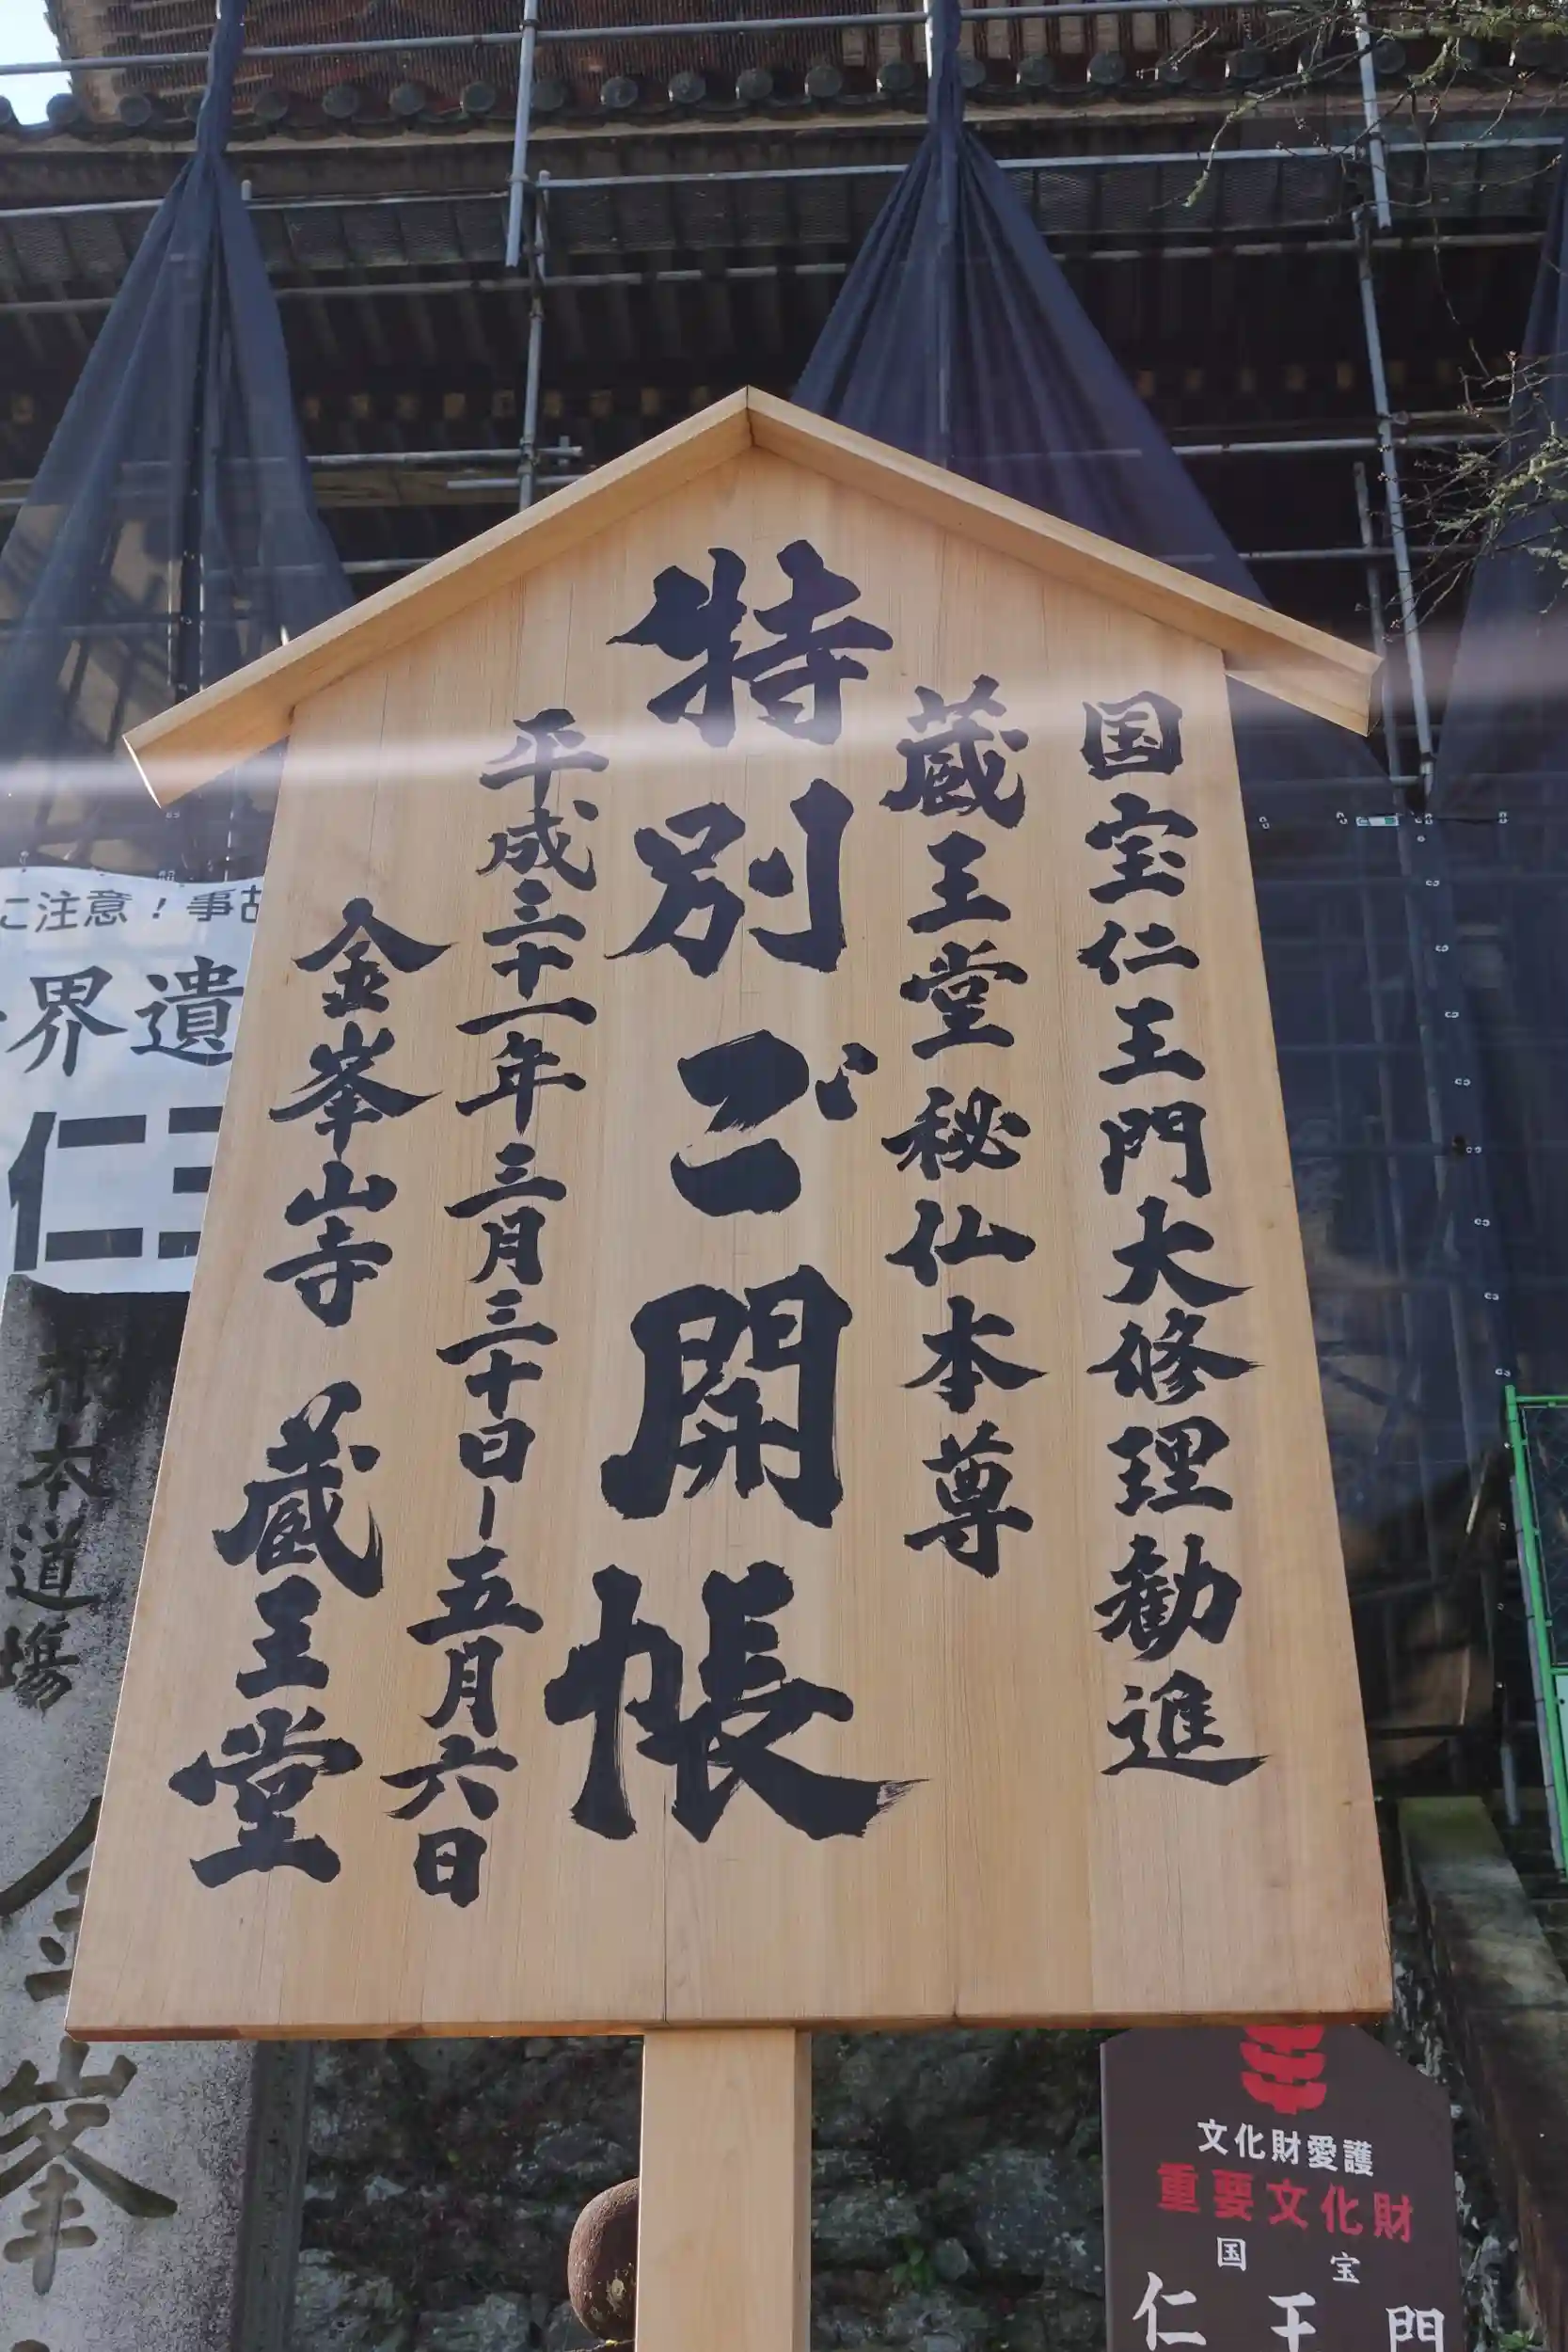 国宝仁王門大修理勧進
蔵王堂秘仏本尊
特別ご開帳
平成三十一年三月三十日-五月六日
金峯山寺 蔵王堂
に注意!事故
界遺
仁王
本道場
金峯
文化財愛護
重要文化財
国宝
仁王門